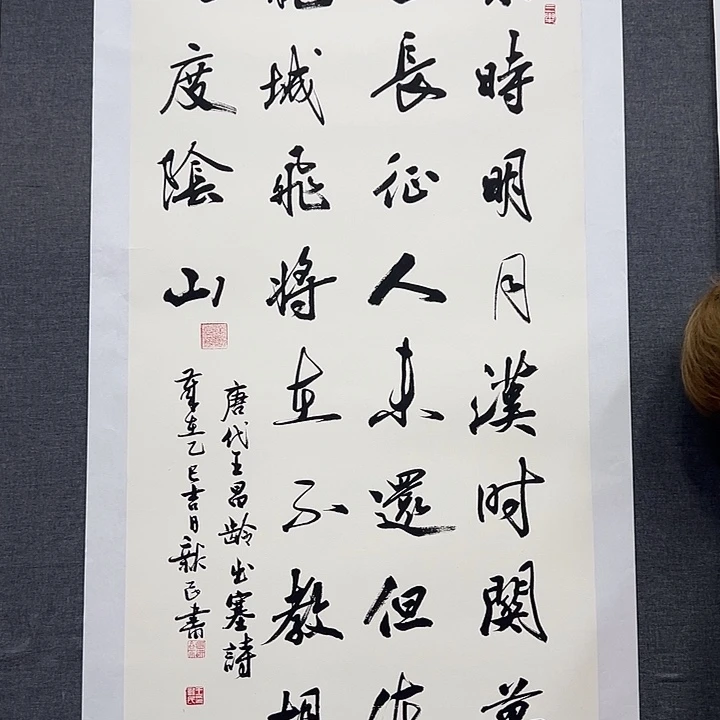 時明月漢时関萬
長征人未還但使
龍城飛將在不教胡
度陰山
唐代王昌齡出塞詩
歲在乙巳吉日書